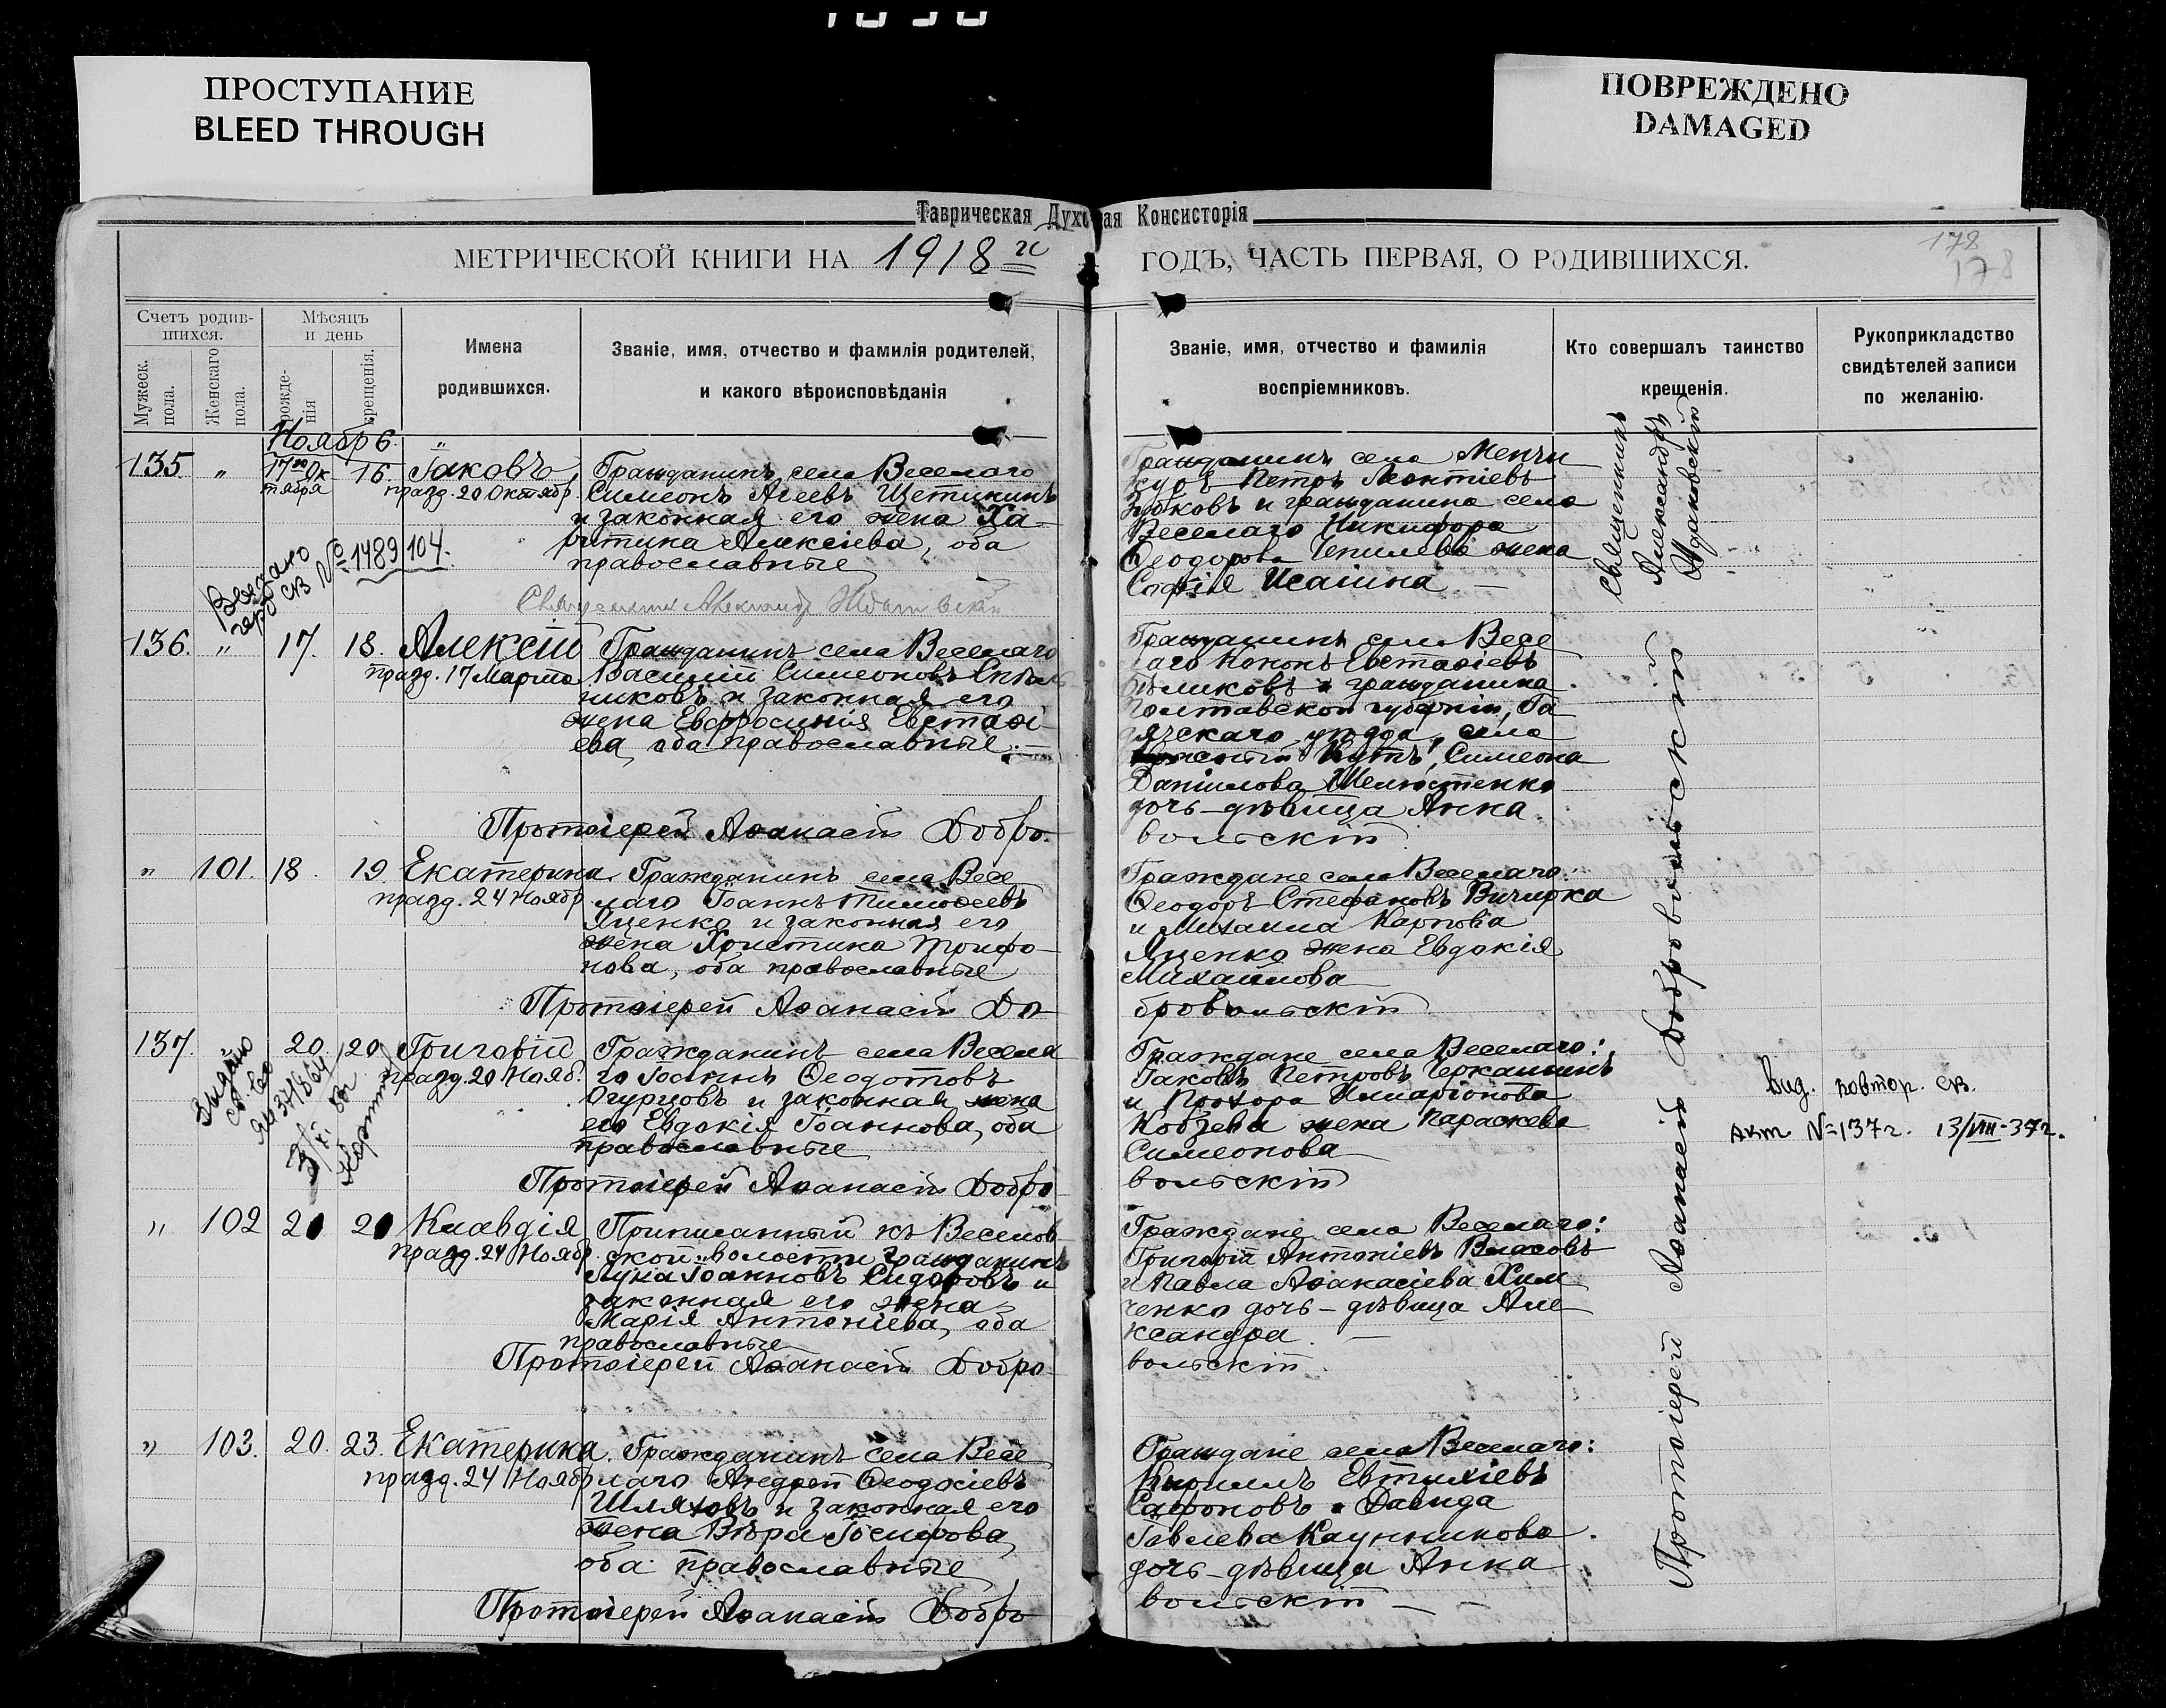 1898
ПРОСТУПАНИЕ
BLEED THROUGH
ПОВРЕЖДЕНО
DAMAGED
Таврическая Духо ая Консисторія
МЕТРИЧЕСКОЙ КНИГИ НА 1918 й ГОДЪ, ЧАСТЬ ПЕРВАЯ, О РОДИВШИХСЯ.
178
178
Счетъ родив-
шихся.
Мужеск.
пола.
Женскаго
пола.
Мѣсяцъ
и день
рожде-
нія
крещенія.
Имена
родившихся.
Званіе, имя, отчество и фамилія родителей,
и какого вѣроисповѣданія
Званіе, имя, отчество и фамилія
воспріемниковъ.
Кто совершалъ таинство
крещенія.
Рукоприкладство
свидѣтелей записи
по желанію.
Ноябрь
135. " 17го Ок-
тября
16. Іаковъ,
празд. 20 Октябр.
Гражданинъ села Веселаго
Симеонъ Агеевъ Щетининъ
и законная его жена Ха-
ритина Алексіева, оба
православные
Гражданинъ села Менчи
куръ Петръ Леонтіевъ
Зубковъ и гражданина села
Веселаго Никифора
Ѳеодорова Чепилева жена
Софія Исаіина —
Священникъ
Александръ
Ждановскій
Выдано
св № 1489/104.
Священникъ Александръ Ждановскій
136. " 17. 18. Алексій
празд. 17 Марта
Гражданинъ села Веселаго
Василий Симеоновъ
никовъ и законная его
жена Евфросинія Евстаѳі
ева, оба православные. —
Гражданинъ села Весе
лаго Кононъ Евстаѳіевъ
Бѣликовъ и гражданина
Полтавской губерніи, Га
дячскаго уѣзда, села
Кутъ, Симеона
Даніилова Шелюстенко
дочь-дѣвица Анна
Протоіерей Аѳанасій Добро-
вольскій
" 101. 18. 19. Екатерина.
празд. 24 Ноябр.
Гражданинъ села Весе
лаго Іоаннъ Тимоѳеевъ
Яценко и законная его
жена Христина Трифо-
нова, оба православные
Граждане села Веселаго:
Ѳеодоръ Стефановъ Вичирка
и Михаила Карпова
Яценко жена Евдокія
Михайлова
Протоіерей Аѳанасій До-
бровольскій
137. 20. 20. Григорій
празд. 20 Нояб.
Гражданинъ села Весела
го Іоаннъ Ѳеодотовъ
Огурцовъ и законная жена
его Евдокія Іоаннова, оба
православные
Граждане села Веселаго:
Іаковъ Петровъ Черкашинъ
и Прохора Иларіонова
Кобзева жена Параскева
Симеонова
Выдано
св.
вид. повтор. св.
акт №137г. 13/VIII-37г.
Протоіерей Аѳанасій Добро
вольскій
" 102 20 20 Клавдія
празд. 24 Ноябр.
Приписанный къ Веселов
ской волости гражданинъ
Лука Іоанновъ Сидоровъ и
законная его жена
Марія Антоніева, оба
православные
Граждане села Веселаго:
Григорій Антоніевъ Власовъ
и Павла Аѳанасіева Хим
ченко дочь-дѣвица Але
ксандра. —
Протоіерей Аѳанасій Добро
вольскій.
" 103. 20. 23. Екатерина.
празд. 24 Ноябр
Гражданинъ села Весе
лаго Андрей Ѳеодосіевъ
Шляховъ и законная его
жена Вѣра Іосифова,
оба православные
Граждане села Веселаго:
Кириллъ Евтихіевъ
Сафоновъ и Давида
Іовлева Каунникова
дочь-дѣвица Анна
Протоіерей Аѳанасій Добро
вольскій —
Протоіерей Аѳанасій Добровольскій